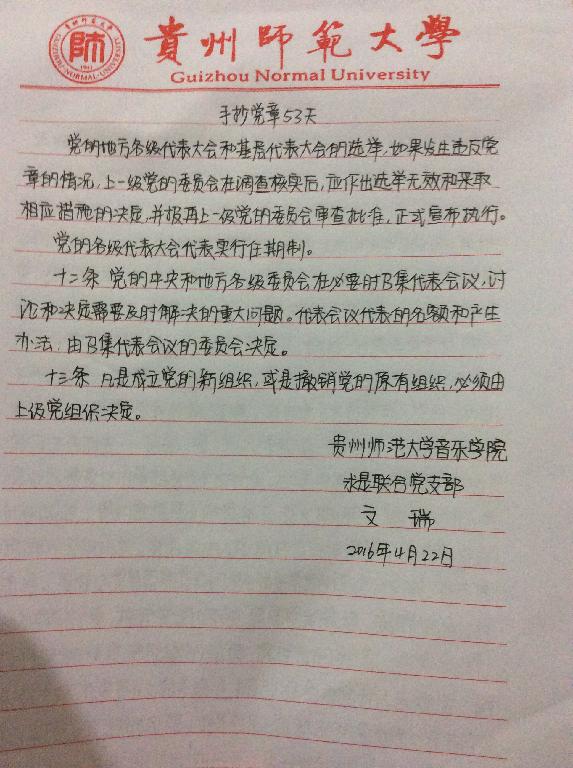 貴州師範大學
Guizhou Normal University
手抄党章53天
党的地方各级代表大会和基层代表大会的选举,如果发生违反党
章的情况,上一级党的委员会在调查核实后,应作出选举无效和采取
相应措施的决定,并报再上一级党的委员会审查批准,正式宣布执行。
党的各级代表大会代表实行任期制。
十二条 党的中央和地方各级委员会在必要时召集代表会议,讨
论和决定需要及时解决的重大问题。代表会议代表的名额和产生
办法,由召集代表会议的委员会决定。
十三条 凡是成立党的新组织,或是撤销党的原有组织,必须由
上级党组织决定。
贵州师范大学音乐学院
求是联合党支部
文 瑞
2016年4月22日